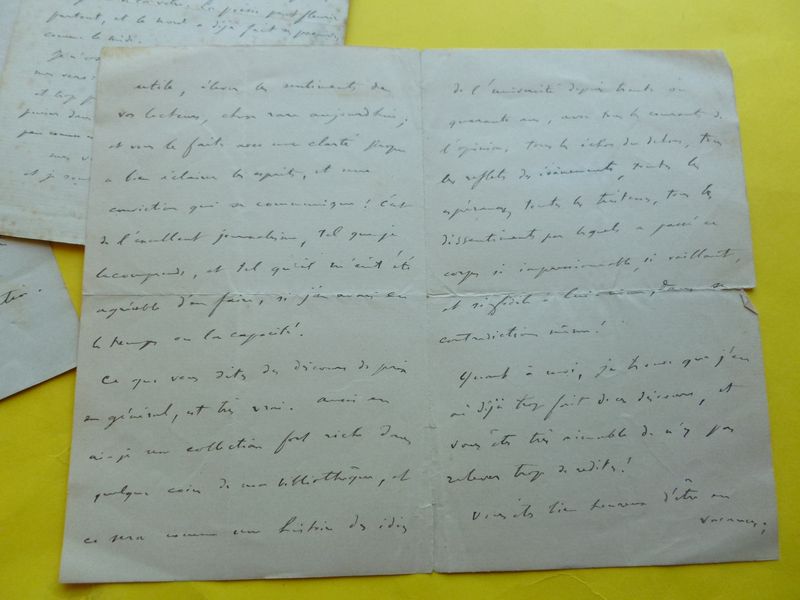 la poésie peut fleurir
partout, et le nord a déjà fait ses preuves
comme le midi.
utile, élever les sentiments de
vos lecteurs, chose rare aujourd'hui;
et vous le faites avec une clarté propre
à bien éclairer les esprits, et une
conviction qui se communique! C'est
de l'excellent journalisme, tel que je
le comprends, et tel qu'il m'eût été
agréable d'en faire, si j'en avais eu
le temps ou la capacité!
Ce que vous dites des discours de prix
en général, est très vrai. Aussi en
ai-je une collection fort riche dans
quelque coin de ma bibliothèque, et
ce sera comme une histoire des idées
de l'université depuis trente ou
quarante ans, avec tous les courants de
l'opinion, tous les échos du dehors, tous
les reflets des événements, toutes les
espérances, toutes les tristesses, tous les
dissentiments par lesquels a passé ce
corps si impressionnable, si vaillant,
et si fidèle à lui-même, dans sa
contradiction même!
Quant à moi, je trouve que j'en
ai déjà trop fait de ces discours, et
vous êtes très aimable de n'y pas
relever trop de redites!
Vous êtes bien heureux d'être en
vacances;